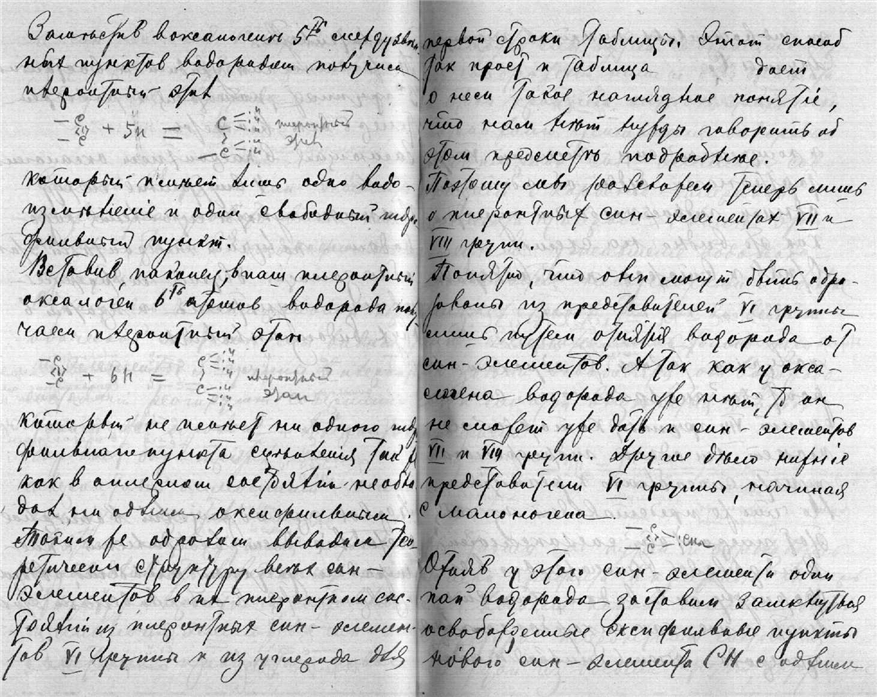 Заместив в оксалогене 5ть
ных пунктов водородом получаем
пиеройтный этил
+ 5H =
пиеройтный
этил
который имеет лишь одно видо-
измѣненіе и один свободный гидро-
фильный пункт.
Вставив, наконец, в наш пиеройтный
оксалоген 6ть атомов водорода полу-
чаем пиеройтный этан
+ 6H =
пиеройтный
этан
который не имеет ни одного гидро-
фильнаго пункта сцѣпленія так
как в
дал ни одним оксифильным.
Таким же образом выводим тео-
ретически структуру всѣх син-
элементов в их пиеройтном сос-
тоятіи из пиеройтных син-элемен-
тов VI группы и из углерода для
первой строки таблицы. Этот способ
так прост и таблица дает
о нем такое наглядное понятіе,
что нам нѣт нужды говорить об
этом предметѣ подробнѣе.
Поэтому мы поговорим теперь лишь
о пиеройтных син-элементах VII и
VIII групп.
Понятно, что они могут быть обра-
зованы из представителей VI группы
лишь путем отнятія водорода от
син-элементов. А так как у окса-
логена водорода уже нѣт, то он
не может уже дать и син-элементов
VII и VIII групп. Другие дѣло нижніе
представители VI группы, начиная
с малоногена.
Отняв у этого син-элемента один
водорода заставим замкнуться
освобожденные оксифильные пункты
нового син-элемента CH с одним